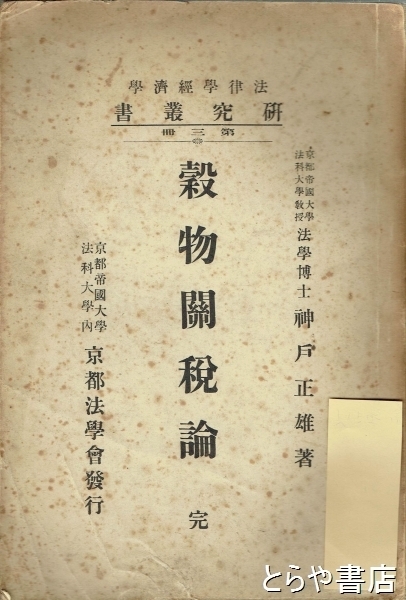 法律學經濟學
研究叢書
第三冊
京都帝國大學
法科大學教授
法學博士 神戸正雄著
穀物關税論 完
京都帝國大學
法科大學內
京都法學會發行
とらや書店